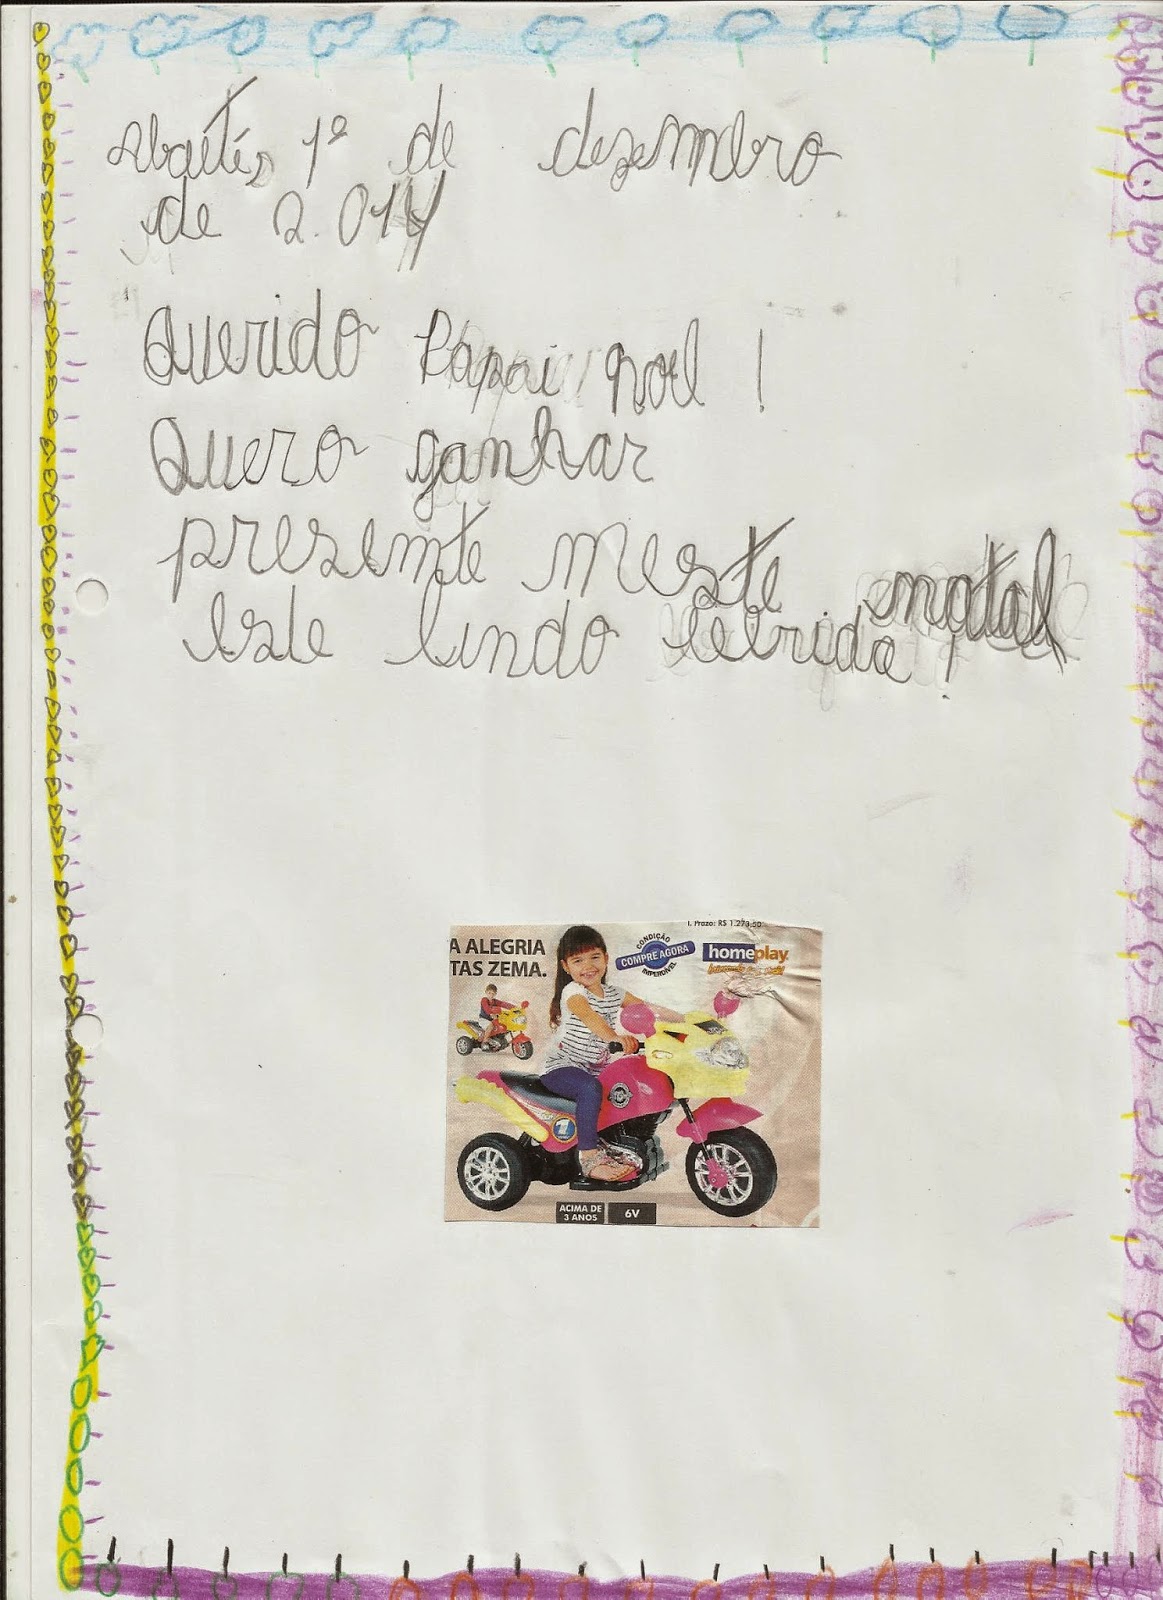 Abaeté, 1º de dezembro
de 2.014
Querido Papai noel!
Quero ganhar
presemte meste natal
este lindo
!
I. Prazo: R$ 1.273,50
A ALEGRIA
TAS ZEMA.
CONDIÇÃO
COMPRE AGORA
IMPERDÍVEL
homeplay
1
ACIMA DE
3 ANOS
6V